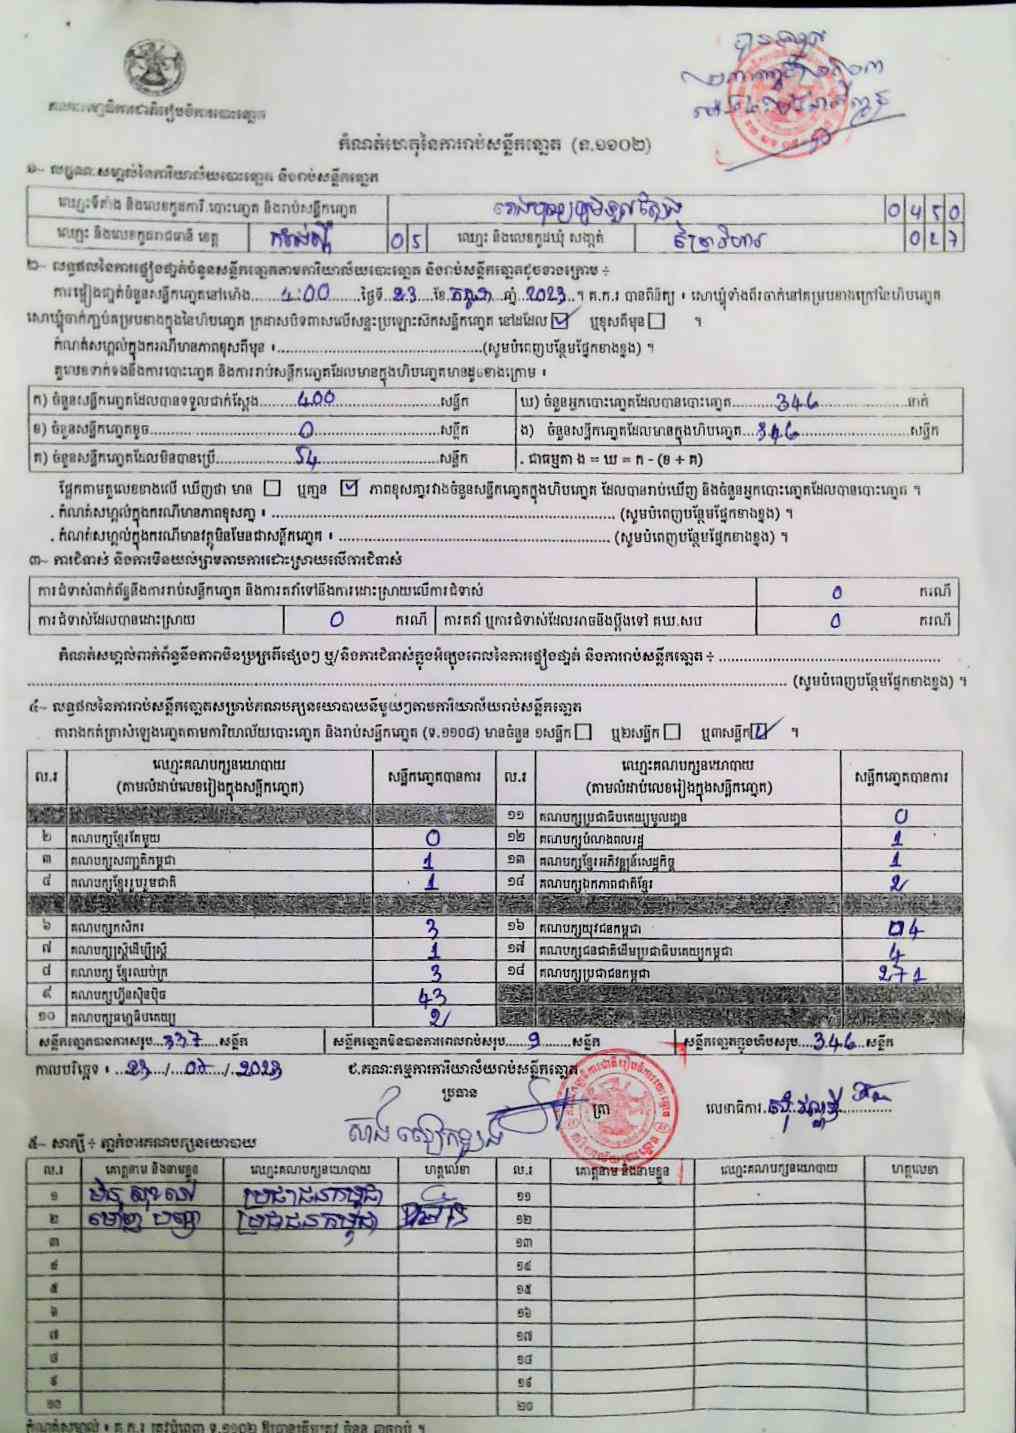 គណៈកម្មាធិការជាតិរៀបចំការបោះឆ្នោត
កំណត់ហេតុនៃការរាប់សន្លឹកឆ្នោត (ទ.១១០២)
១~ លក្ខណៈសម្គាល់នៃការិយាល័យបោះឆ្នោត និងរាប់សន្លឹកឆ្នោត
ឈ្មោះទីតាំង និងលេខកូដការិ.បោះឆ្នោត និងរាប់សន្លឹកឆ្នោត 0450
ឈ្មោះ និងលេខកូដរាជធានី ខេត្ត កំពង់ស្ពឺ 05 ឈ្មោះ និងលេខកូដឃុំ សង្កាត់ 027
២~ លទ្ធផលនៃការផ្ទៀងផ្ទាត់ចំនួនសន្លឹកឆ្នោតតាមការិយាល័យបោះឆ្នោត និងរាប់សន្លឹកឆ្នោតដូចខាងក្រោម ÷
ការផ្ទៀងផ្ទាត់ចំនួនសន្លឹកឆ្នោតនៅម៉ោង....4:00....ថ្ងៃទី..23..ខែ.កក្កដា..ឆ្នាំ..2023..។ គ.ក.រ បានពិនិត្យ ៖ សោឃ្លុំទាំងពីរចាក់នៅគម្របខាងក្រៅនៃហិបឆ្នោត
សោឃ្លុំចាក់ភ្ជាប់គម្របខាងក្នុងនៃហិបឆ្នោត ក្រដាសបិទពាសលើសន្ទះប្រឡោះសៀកសន្លឹកឆ្នោត នៅដដែល ☑ ឬខុសពីមុន ☐ ។
កំណត់សម្គាល់ក្នុងករណីមានភាពខុសពីមុន ៖..............................(សូមបំពេញបន្ថែមផ្នែកខាងខ្នង) ។
តួលេខទាក់ទងនឹងការបោះឆ្នោត និងការរាប់សន្លឹកឆ្នោតដែលមានក្នុងហិបឆ្នោតមានដូចខាងក្រោម ៖
ក) ចំនួនសន្លឹកឆ្នោតដែលបានទទួលជាក់ស្តែង......400......សន្លឹក ឃ) ចំនួនអ្នកបោះឆ្នោតដែលបានបោះឆ្នោត......346......នាក់
ខ) ចំនួនសន្លឹកឆ្នោតខូច......0......សន្លឹក ង) ចំនួនសន្លឹកឆ្នោតដែលមានក្នុងហិបឆ្នោត...346......សន្លឹក
គ) ចំនួនសន្លឹកឆ្នោតដែលមិនបានប្រើ......54......សន្លឹក . ជាធម្មតា ង = ឃ = ក - (ខ + គ)
ផ្អែកតាមតួលេខខាងលើ ឃើញថា មាន ☐ ឬគ្មាន ☑ ភាពខុសគ្នារវាងចំនួនសន្លឹកឆ្នោតក្នុងហិបឆ្នោត ដែលបានរាប់ឃើញ និងចំនួនអ្នកបោះឆ្នោតដែលបានបោះឆ្នោត ។
. កំណត់សម្គាល់ក្នុងករណីមានភាពខុសគ្នា ៖ .............................. (សូមបំពេញបន្ថែមផ្នែកខាងខ្នង) ។
. កំណត់សម្គាល់ក្នុងករណីមានវត្ថុមិនមែនជាសន្លឹកឆ្នោត ៖ .............................. (សូមបំពេញបន្ថែមផ្នែកខាងខ្នង) ។
៣~ ការជំទាស់ និងការមិនយល់ស្របតាមការដោះស្រាយលើការជំទាស់
ការជំទាស់ពាក់ព័ន្ធនឹងការរាប់សន្លឹកឆ្នោត និងការតវ៉ាទៅនឹងការដោះស្រាយលើការជំទាស់ 0 ករណី
ការជំទាស់ដែលបានដោះស្រាយ 0 ករណី ការតវ៉ា ឬការជំទាស់ដែលអាចនឹងប្តឹងទៅ គឃ.សប 0 ករណី
កំណត់សម្គាល់ពាក់ព័ន្ធនឹងភាពមិនប្រក្រតីផ្សេងៗ ឬ/និងការជំទាស់ក្នុងអំឡុងពេលនៃការផ្ទៀងផ្ទាត់ និងការរាប់សន្លឹកឆ្នោត ÷ ..............................
.............................. (សូមបំពេញបន្ថែមផ្នែកខាងខ្នង) ។
៤~ លទ្ធផលនៃការរាប់សន្លឹកឆ្នោតសម្រាប់គណបក្សនយោបាយនីមួយៗតាមការិយាល័យរាប់សន្លឹកឆ្នោត
តារាងកត់ត្រាសំឡេងឆ្នោតតាមការិយាល័យបោះឆ្នោត និងរាប់សន្លឹកឆ្នោត (ទ.១១០៨) មានចំនួន ១សន្លឹក ☐ ឬ២សន្លឹក ☐ ឬ៣សន្លឹក ☑ ។
ល.រ ឈ្មោះគណបក្សនយោបាយ (តាមលំដាប់លេខរៀងក្នុងសន្លឹកឆ្នោត) សន្លឹកឆ្នោតបានការ ល.រ ឈ្មោះគណបក្សនយោបាយ (តាមលំដាប់លេខរៀងក្នុងសន្លឹកឆ្នោត) សន្លឹកឆ្នោតបានការ
១១ គណបក្សប្រជាធិបតេយ្យមូលដ្ឋាន 0
២ គណបក្សខ្មែរតែមួយ 0 ១២ គណបក្សបំណងពលរដ្ឋ 1
៣ គណបក្សសញ្ជាតិកម្ពុជា 1 ១៣ គណបក្សខ្មែរអភិវឌ្ឍន៍សេដ្ឋកិច្ច 1
៤ គណបក្សខ្មែររួបរួមជាតិ 1 ១៤ គណបក្សឯកភាពជាតិខ្មែរ 2
៦ គណបក្សកសិករ 3 ១៦ គណបក្សយុវជនកម្ពុជា 4
៧ គណបក្សស្ត្រីដើម្បីស្ត្រី 1 ១៧ គណបក្សជនជាតិដើមប្រជាធិបតេយ្យកម្ពុជា 4
៨ គណបក្ស ខ្មែរឈប់ក្រ 3 ១៨ គណបក្សប្រជាជនកម្ពុជា 271
៩ គណបក្សហ្វ៊ុនស៊ិនប៉ិច 43
១០ គណបក្សធម្មាធិបតេយ្យ 2
សន្លឹកឆ្នោតបានការសរុប....337.....សន្លឹក សន្លឹកឆ្នោតមិនបានការពេលរាប់សរុប.....9.....សន្លឹក សន្លឹកឆ្នោតក្នុងហិបសរុប....346...សន្លឹក
កាលបរិច្ឆេទ ៖ ..23.../...07.../..2023 ជ.គណៈកម្មការការិយាល័យរាប់សន្លឹកឆ្នោត
ប្រធាន
ត្រា
លេខាធិការ
៥~ សាក្សី ÷ ភ្នាក់ងារគណបក្សនយោបាយ
ល.រ គោត្តនាម និងនាមខ្លួន ឈ្មោះគណបក្សនយោបាយ ហត្ថលេខា ល.រ គោត្តនាម និងនាមខ្លួន ឈ្មោះគណបក្សនយោបាយ ហត្ថលេខា
១ ប្រជាជនកម្ពុជា ១១
២ ប្រជាជនកម្ពុជា ១២
៣ ១៣
៤ ១៤
៥ ១៥
៦ ១៦
៧ ១៧
៨ ១៨
៩ ១៩
១០ ២០